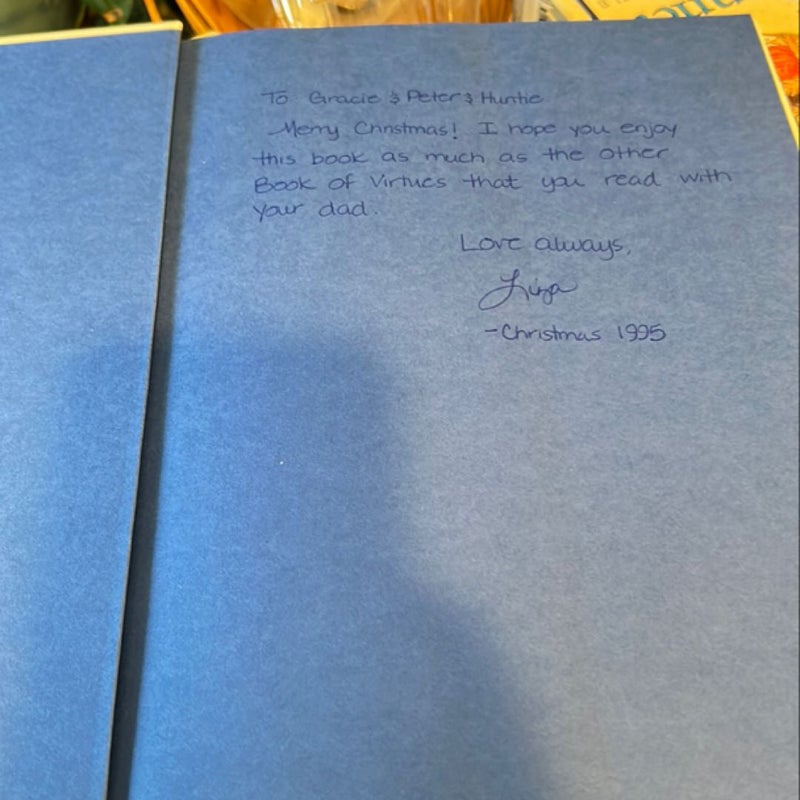 To Gracie & Peter & Huntie
Merry Christmas! I hope you enjoy
this book as much as the other
Book of Virtues that you read with
your dad.
Love always,
Liza
-Christmas 1995